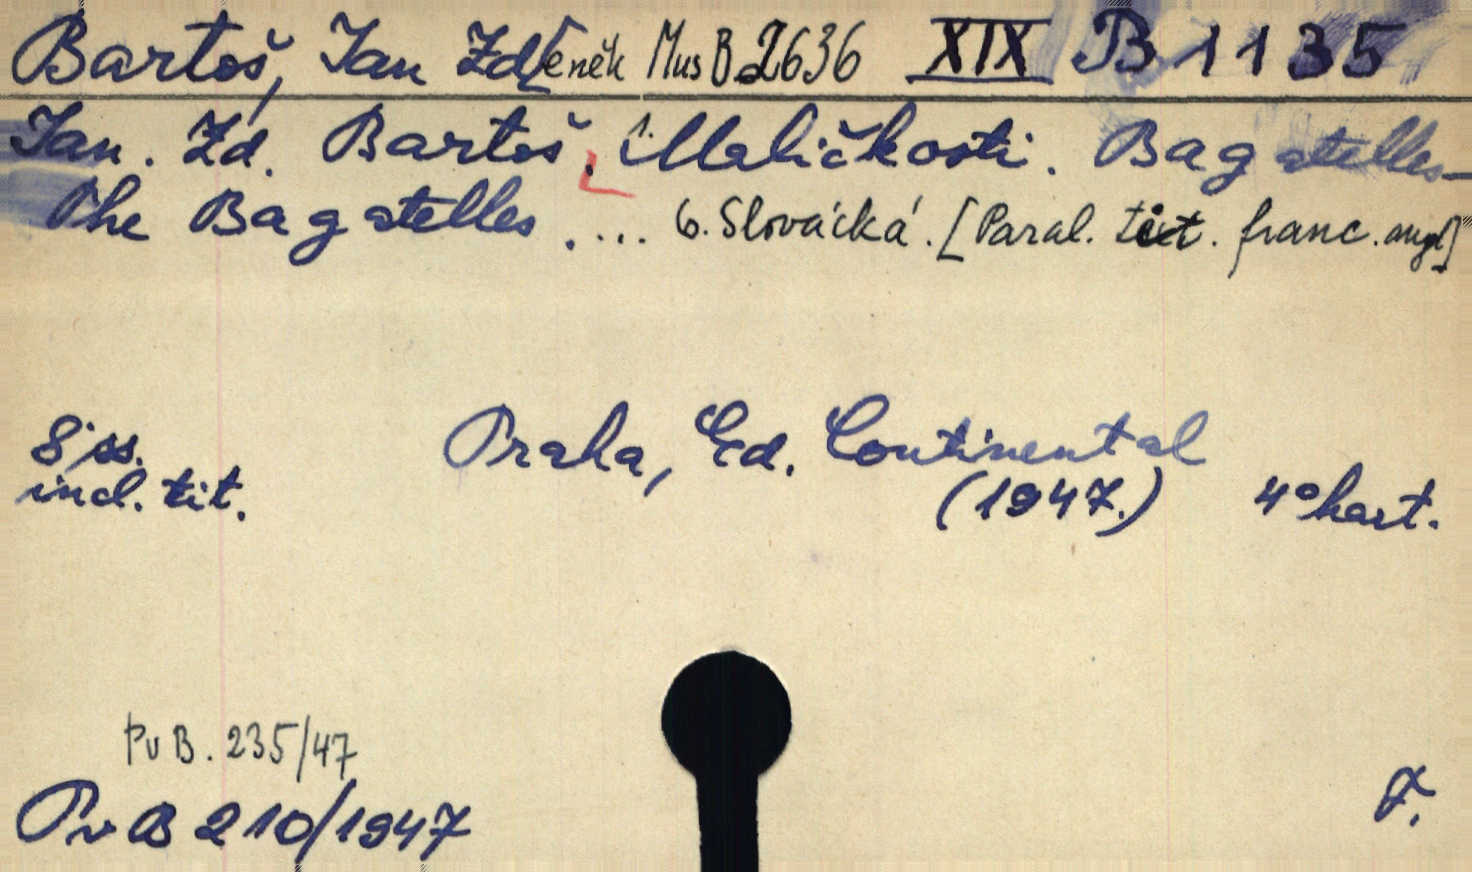 Bartoš, Jan Zdeněk Mus B 2636 XIX B 1135
Jan. Zd. Bartoš. Maličkosti. Bagatelles-
The Bagatelles.... 6. Slovácká. [Paral. tit. franc. angl]
8 ss. Praha, Ed. Continental
incl. tit. (1947.) 4° kart.
Pv B. 235/47
Pv B 210/1947 F.